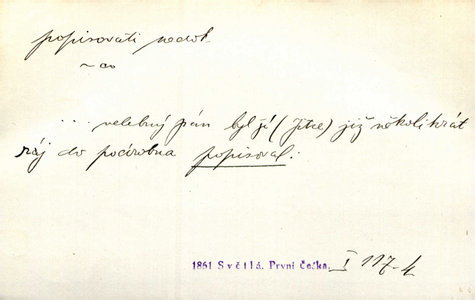 popisovati nedok.
~ co
... velebný pán byl jí (Jitce) již několikrát
ráj do podrobna popisoval.
1861 Světlá. První Češka. I 117